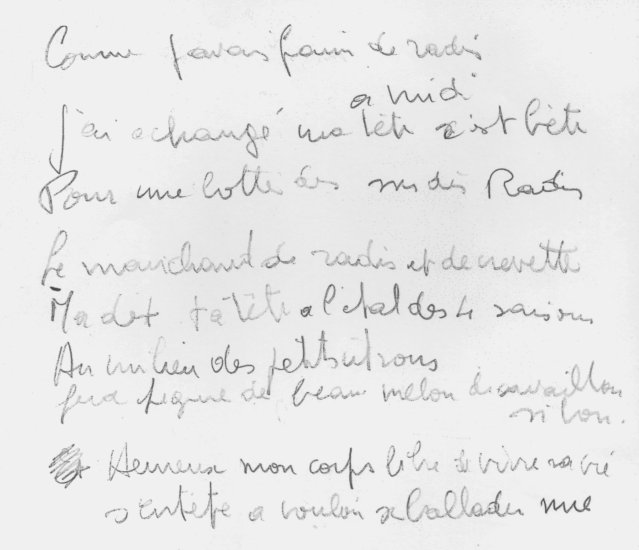 Comme j'avais faim de radis
a midi
J'ai echangé ma tête c'est bête
Pour une botte des Radis
Le marchand de radis et de crevette
M'a dit ta tête a l'étal des 4 saisons
Au milieu des petits citrons
fera figure de beau melon de cavaillon
si bon.
Heureux mon corps libre de vivre sa vie
s'entête a vouloir se ballader nue